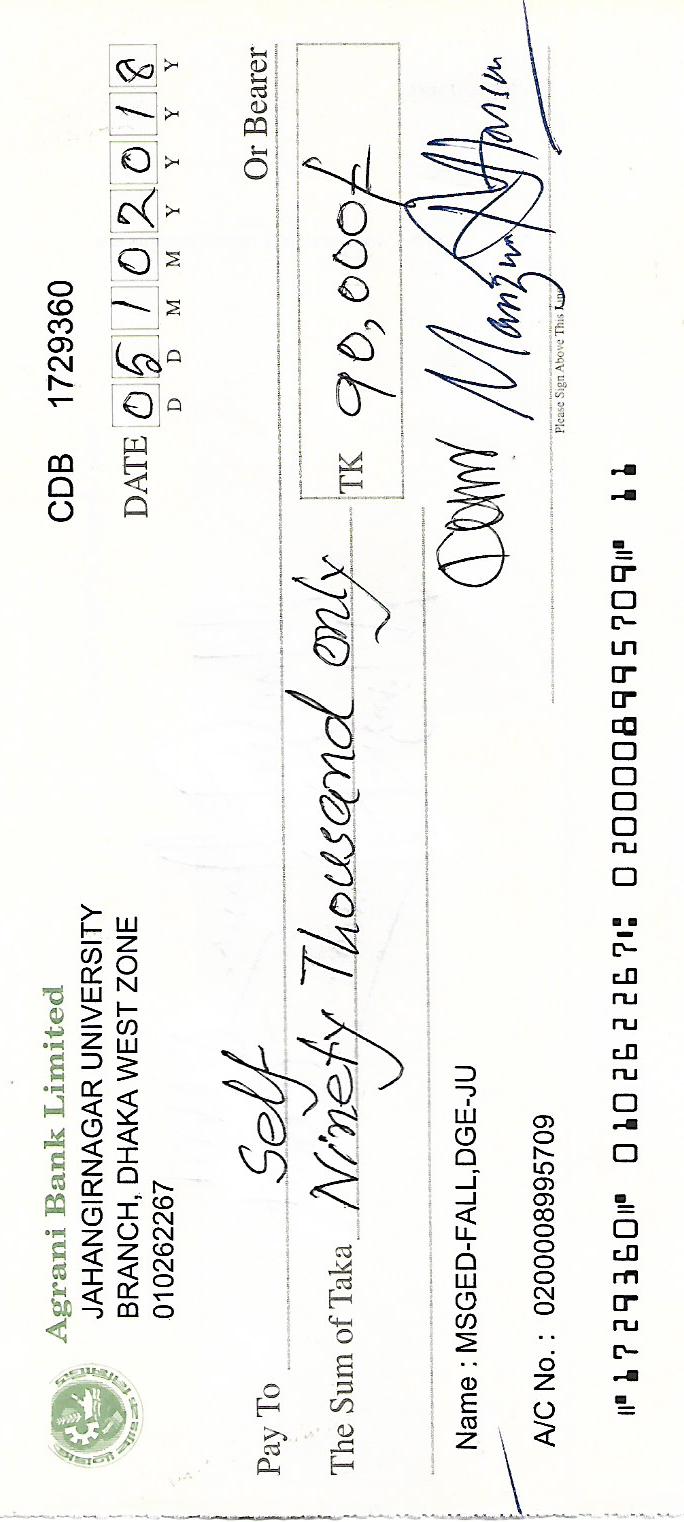 Agrani Bank Limited
JAHANGIRNAGAR UNIVERSITY
BRANCH, DHAKA WEST ZONE
010262267
CDB 1729360
DATE 05102018
D D M M Y Y Y Y
Pay To Self Or Bearer
The Sum of Taka Ninety Thousand only
TK 90,000/-
Name : MSGED-FALL,DGE-JU
A/C No. : 0200008995709
Please Sign Above This Line
⑈1729360⑈ 010262267⑆ 0200008995709⑈ 11